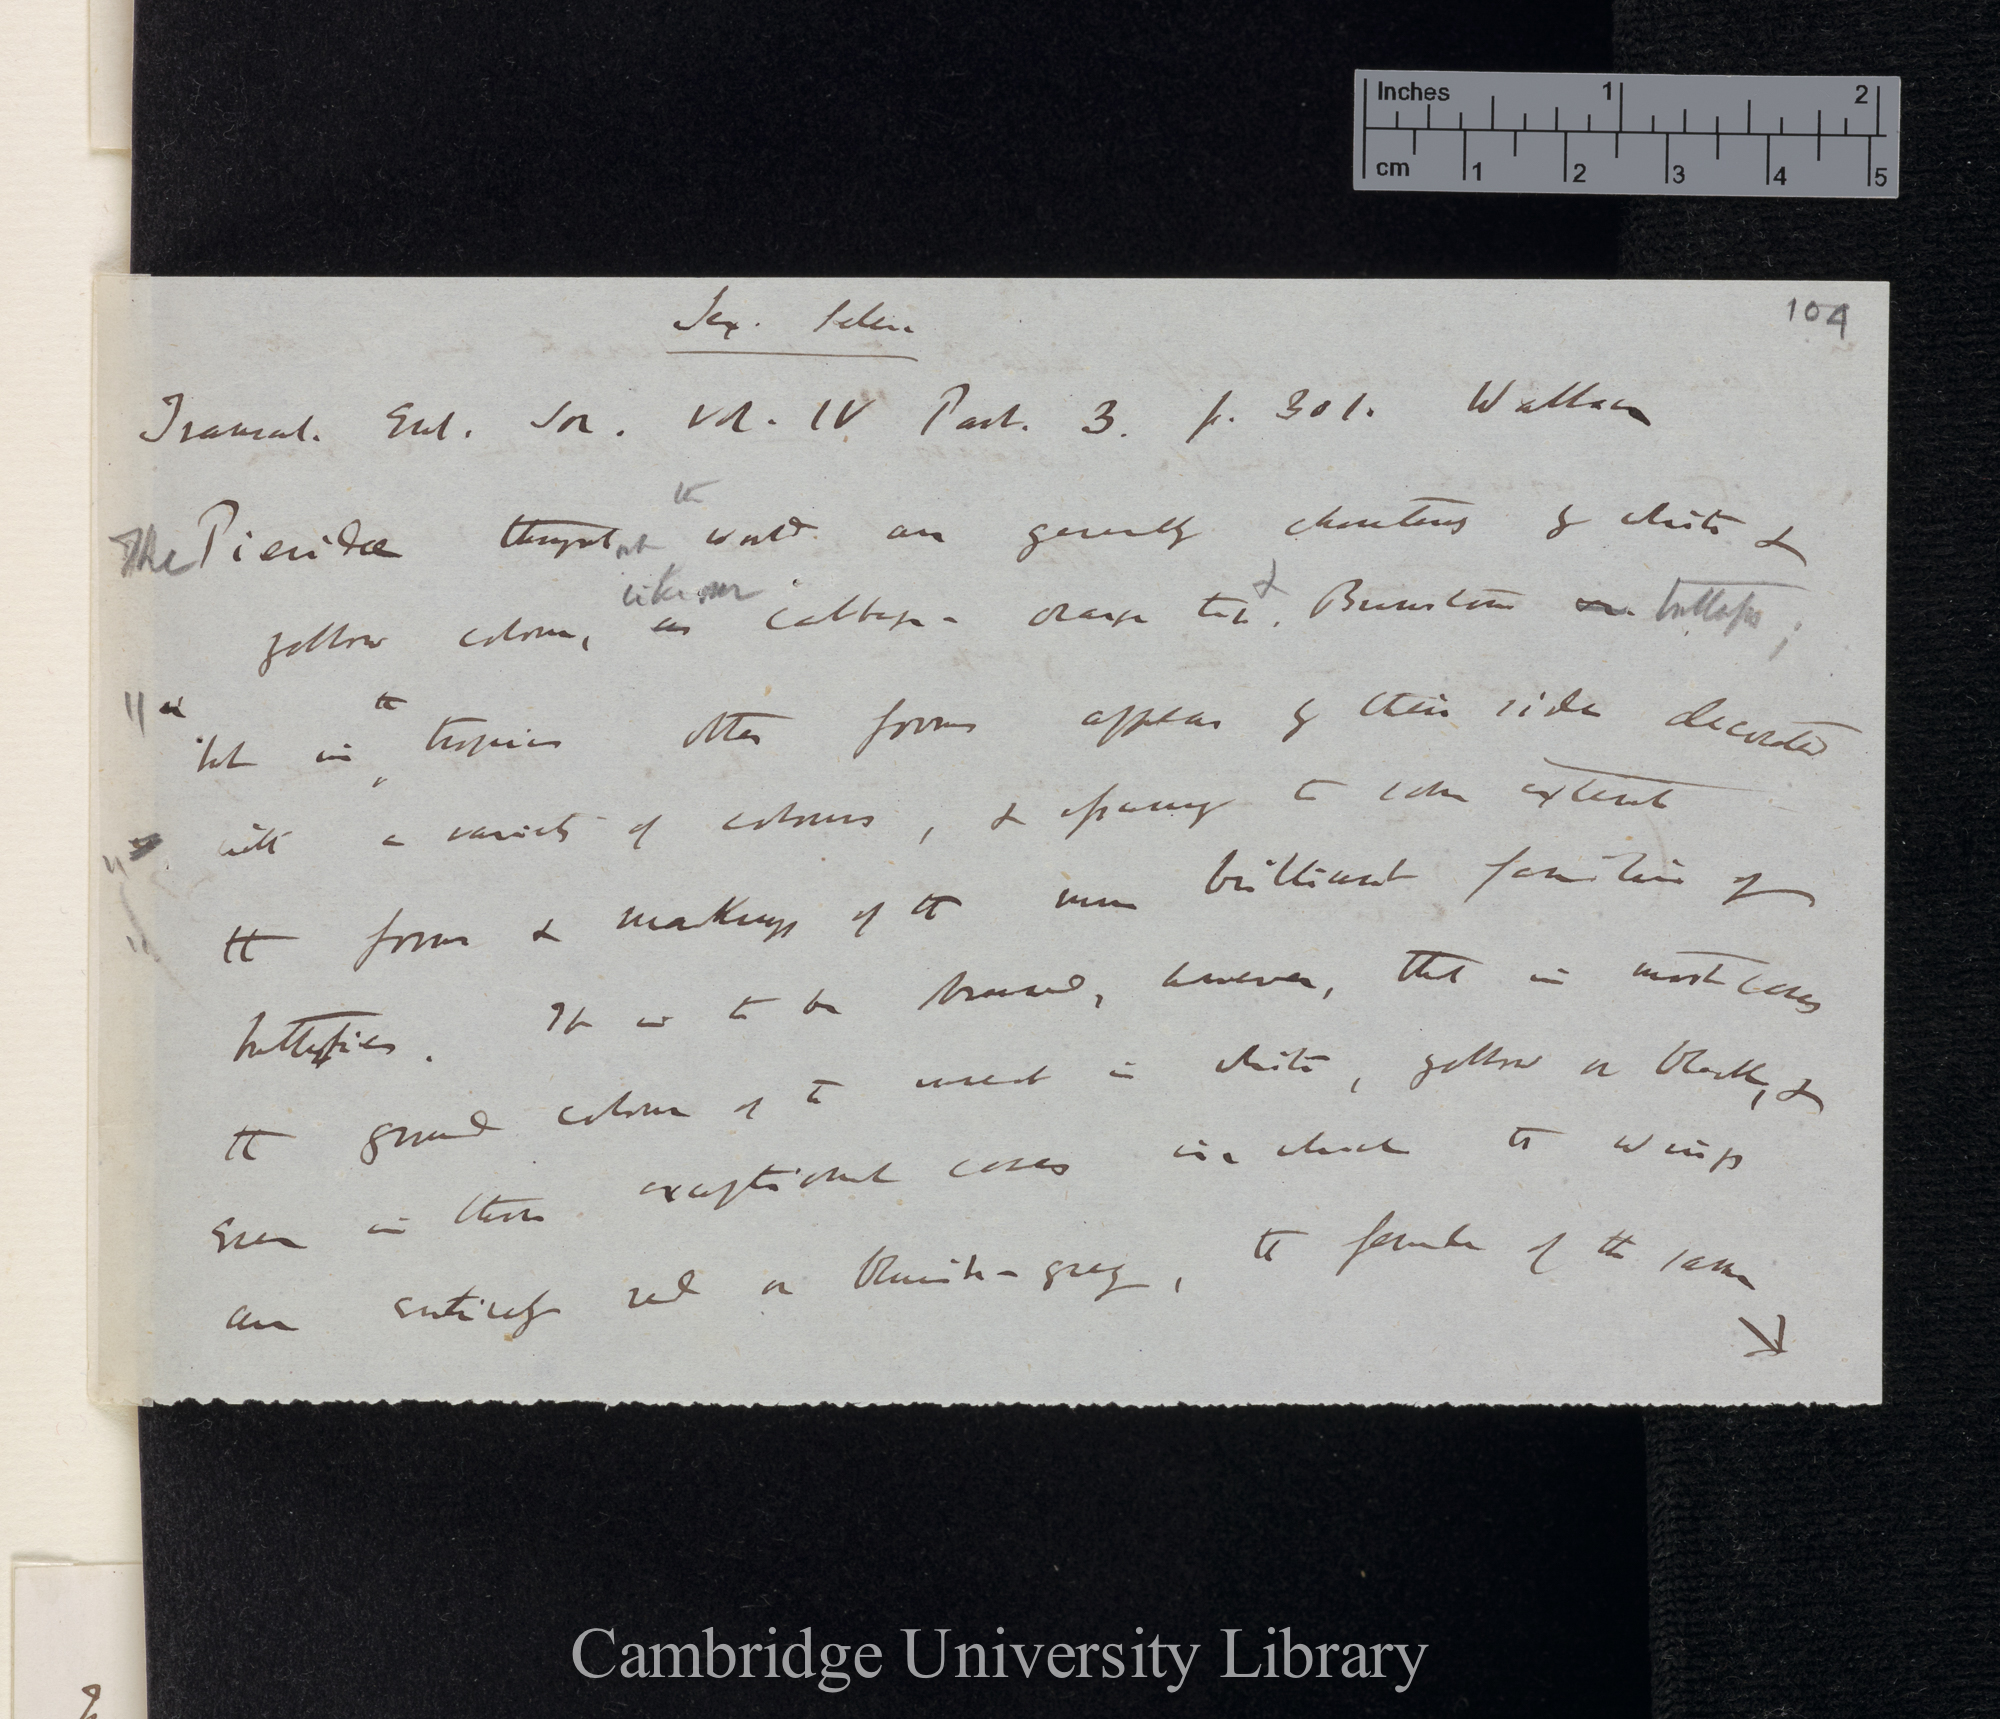 Inches 1 2
cm 1 2 3 4 5
104
Sex. Selec.
Transact. Ent. Soc. Vol. IV Part. 3. p. 301. Wallace
the
The Pieridae throughout world are generally characters by white &
like our &
yellow colour, as cabbage- orange tip, Brimstone or butterflies;
" the
but in tropics other forms appear by their side decorated
" with a variety of colours, & to some extent
" the forms & markings of the more brilliant families of
butterflies. It is to be however, that in most cases
the ground colour of the insect is white, yellow or black, &
even in those exceptional cases in which the wings
are entirely red or bluish-grey, the female of the same
Cambridge University Library